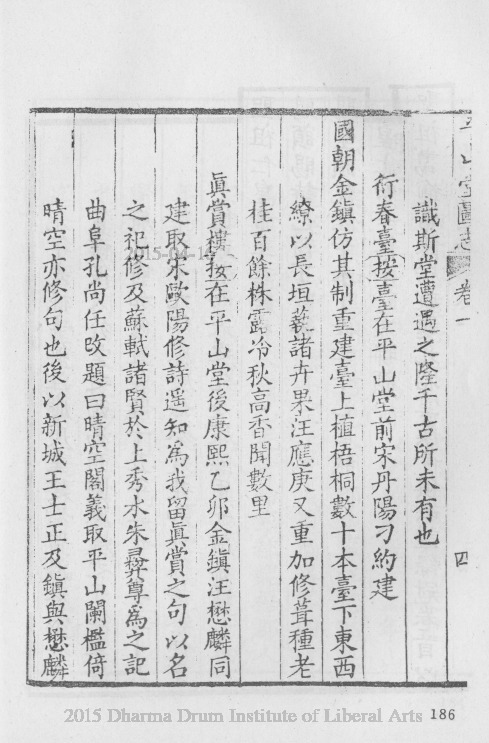 平山堂圖志 卷一
四
識斯堂遭遇之隆千古所未有也
衍春臺按臺在平山堂前宋丹陽刁約建
國朝金鎮仿其制重建臺上植梧桐數十本臺下東西
繚以長垣蓺諸卉果汪應庚又重加修葺種老
桂百餘株露冷秋高香聞數里
真賞樓按在平山堂後康熙乙卯金鎮汪懋麟同
建取宋歐陽修詩遥知為我留真賞之句以名
之祀修及蘇軾諸賢於上秀水朱彛尊為之記
曲阜孔尚任改題曰晴空閣義取平山闌檻倚
晴空亦修句也後以新城王士正及鎮與懋麟
2015 Dharma Drum Institute of Liberal Arts
186